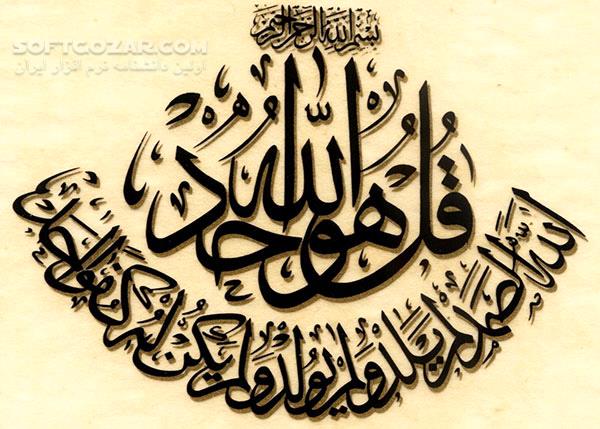 SOFTGOZAR.COM
اولین دانشنامه نرم افزار ایران
بسم الله الرحمن الرحيم
قُلْ هُوَ اللَّهُ أَحَدٌ
اللَّهُ الصَّمَدُ لَمْ يَلِدْ وَلَمْ يُولَدْ وَلَمْ يَكُن لَّهُ كُفُوًا أَحَدٌ